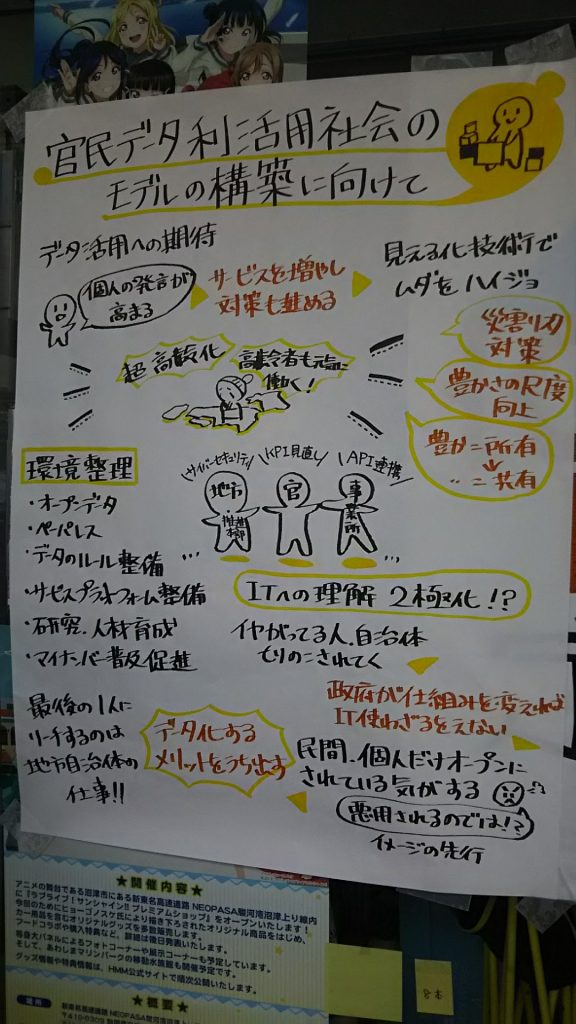 官民データ利活用社会の
モデルの構築に向けて
データ活用への期待
個人の発言が
高まる
サービスを増やし
対策も進める
見える化技術で
ムダをハイジョ
災害リスク
対策
豊かさの尺度
向上
豊か=所有
〃=共有
超高齢化
高齢者も元気に
働く!
環境整理
・オープンデータ
・ペーパレス
・データのルール整備
・サービスプラットフォーム整備
・研究、人材育成
・マイナンバー普及促進
サイバーセキュリティ
KPI見直し
API連携
地市
推進
本部
官
事業所
ITへの理解 2極化!?
イヤがってる人、自治体
とりのこされてく
政府が仕組みを変えれば
IT使わざるをえない
民間、個人だけオープンに
されている気がする
悪用されるのでは!?
イメージの先行
データ化する
メリットをうち出す
最後の1人に
リーチするのは
地市自治体の
仕事!!
★開催内容★
アニメの舞台である沼津市にある新東名高速道路 NEOPASA駿河湾沼津上り線内
に『ラブライブ!サンシャイン!! プレミアムショップ』をオープンいたします!
今回のためにヒョーゴノスケ氏により描き下ろされたオリジナル商品をはじめ、
カー用品を含むオリジナルグッズを多数販売します。
フードコラボや購入特典など、詳細は後日発表いたします。
等身大パネルによるフォトコーナーや展示コーナーも予定しています。
そして、あわしまマリンパークの移動水族館も開催予定です。
グッズ情報や特典情報は、HMM公式サイトで順次公開いたします。
★概要★
場所
新東名高速道路 NEOPASA駿河湾沼津上り